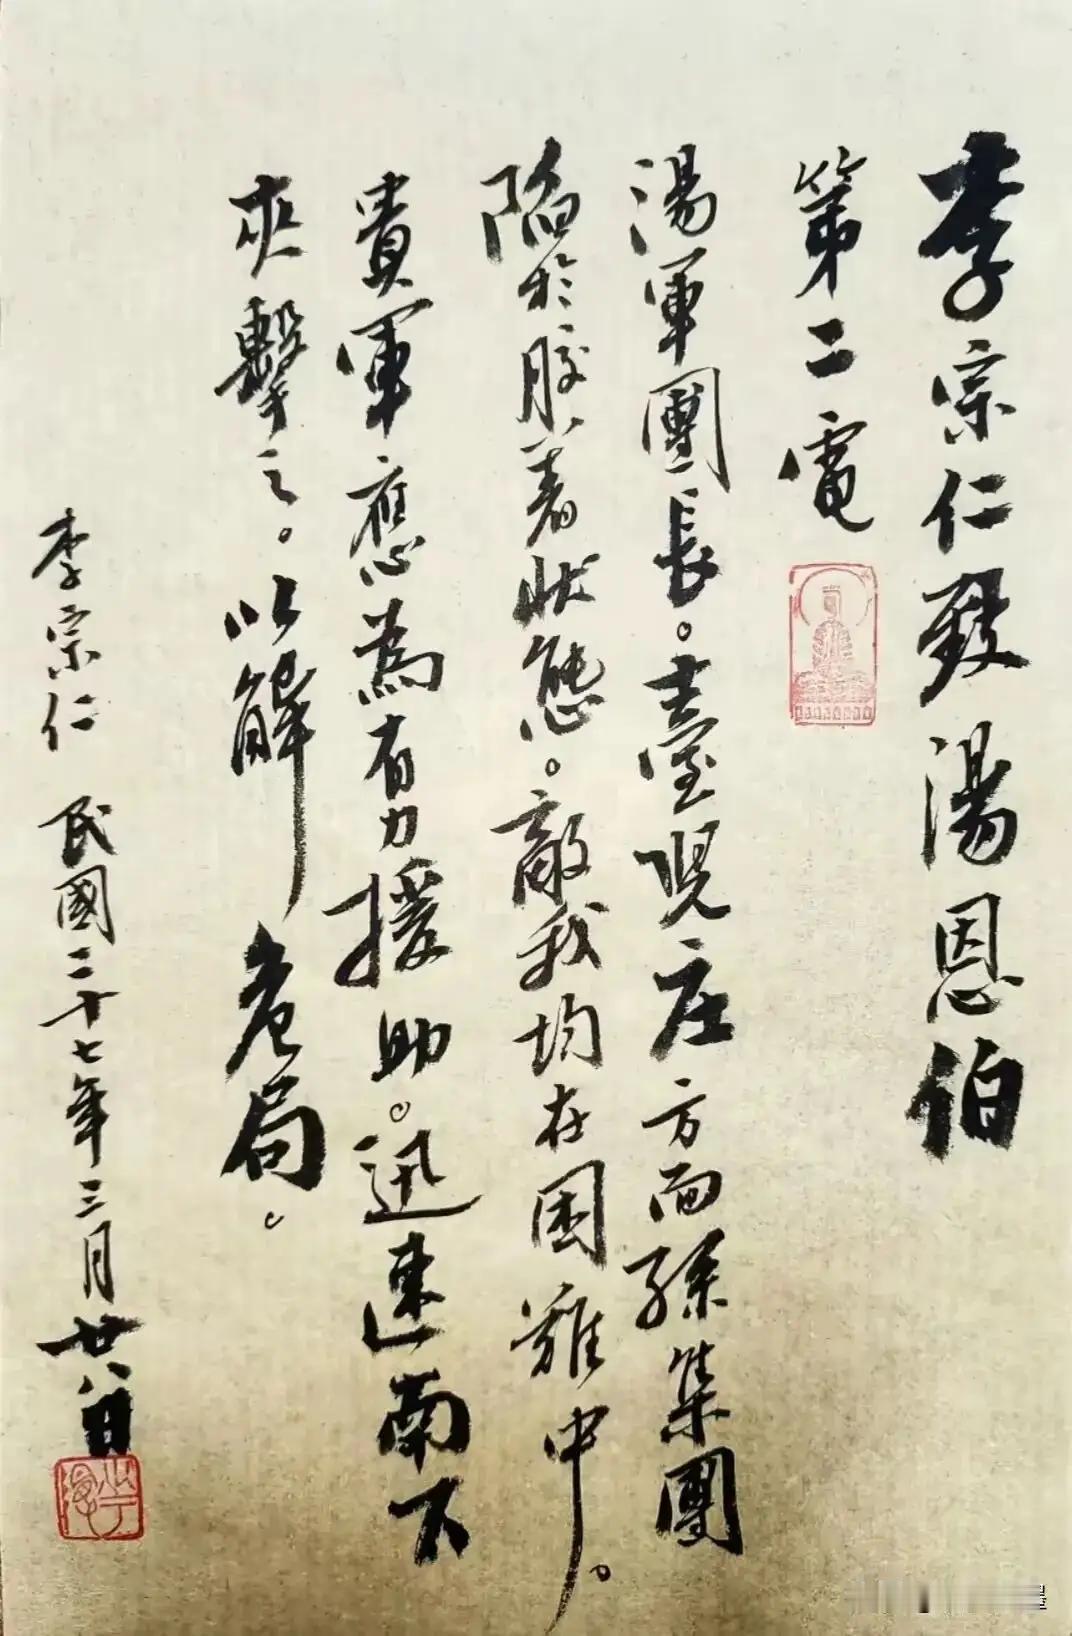 李宗仁致湯恩伯
第二電
湯軍團長。臺兒庄方面孫集團
陷於膠着狀態。敵我均在困難中。
貴軍應為有力援助。迅速南下
夾擊之。以解危局。
李宗仁 民國二十七年三月廿八日